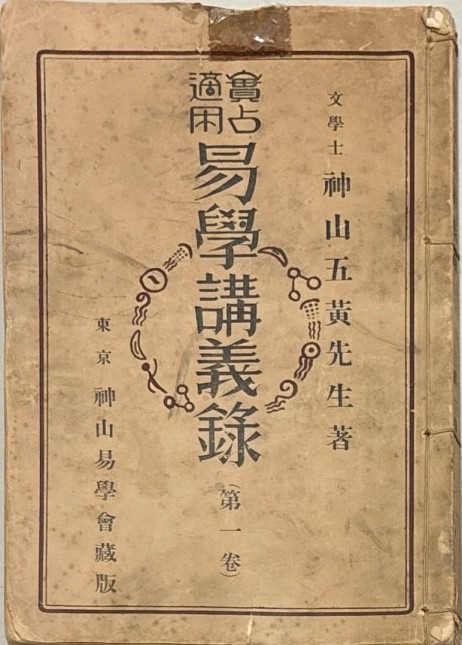 文學士 神山五黃先生著
實占
適用
易學講義錄（第一卷）
東京 神山易學會藏版